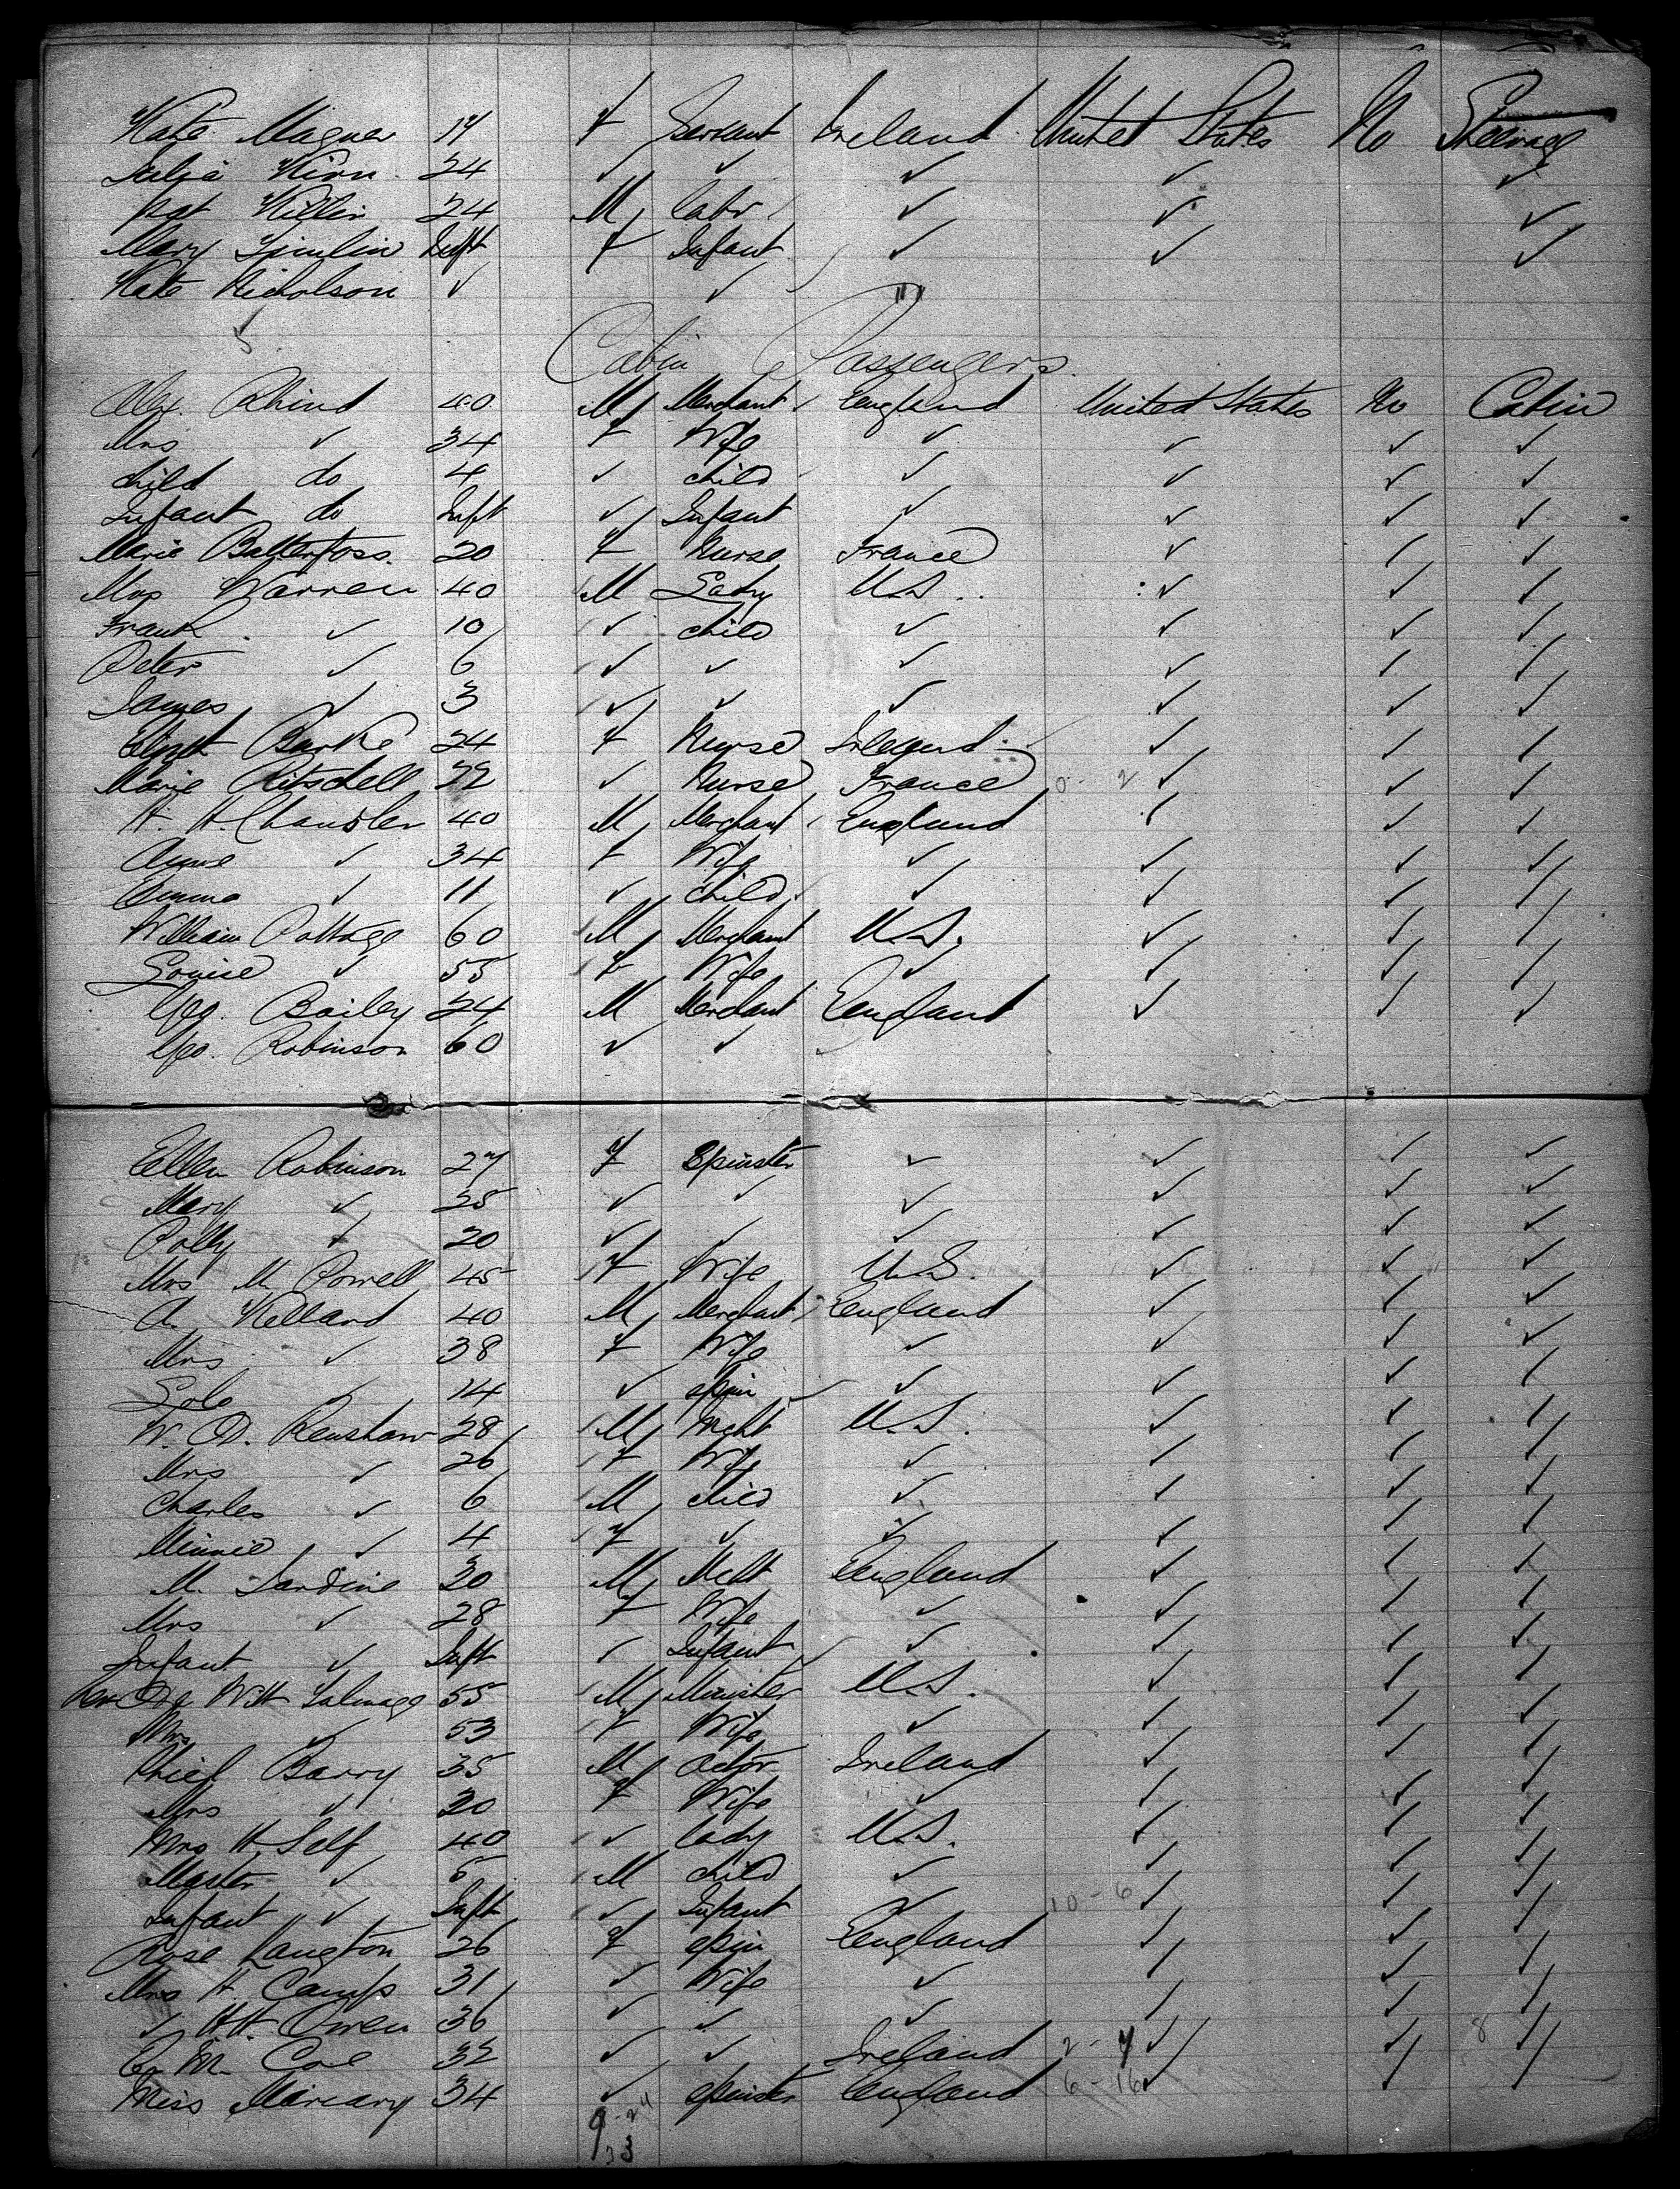 Kate Magner 17 F Servant Ireland United States No Steerage
Julia Kirn 24 ✓ ✓ ✓ ✓ ✓
Pat Killin 24 M labr ✓ ✓ ✓
Mary Timlin Inft F Infant ✓ ✓ ✓
Kate Nicholson ✓ ✓ "
Cabin Passengers
Alex. Rhind 40 M Merchant England United States No Cabin
Mrs ✓ 34 F Wife ✓ ✓ ✓ ✓
child do 4 ✓ child ✓ ✓ ✓ ✓
Infant do Inft ✓ Infant ✓ ✓ ✓ ✓
Marie 20 F Nurse France ✓ ✓ ✓
Mrs Warren 40 M Lady U.S. ✓ ✓ ✓
Frank ✓ 10 ✓ child ✓ ✓ ✓ ✓
Peter ✓ 6 ✓ ✓ ✓ ✓ ✓ ✓
James ✓ 3 ✓ ✓ ✓ ✓ ✓ ✓
Elizth Burke 24 F Nurse Ireland ✓ ✓ ✓
Marie Ritschell 22 ✓ Nurse France 0-2 ✓ ✓ ✓
H. H. Chandler 40 M Merchant England ✓ ✓ ✓
Anne ✓ 34 F Wife ✓ ✓ ✓ ✓
Emma ✓ 11 ✓ child ✓ ✓ ✓ ✓
William Pottage 60 M Merchant U.S. ✓ ✓ ✓
Louise ✓ 55 F Wife ✓ ✓ ✓ ✓
Geo. Bailey 24 M Merchant England ✓ ✓ ✓
Geo. Robinson 60 ✓ ✓
Ellen Robinson 27 F Spinster ✓ ✓ ✓ ✓
Mary ✓ 25 ✓ ✓ ✓ ✓ ✓ ✓
Polly ✓ 20 ✓ ✓ ✓ ✓ ✓ ✓
Mrs M Powell 45 F Wife U.S. ✓ ✓ ✓
A. Kelland 40 M Merchant England ✓ ✓ ✓
Mrs ✓ 38 F Wife ✓ ✓ ✓ ✓
14 ✓ spin ✓ ✓ ✓ ✓
W. D. Renshaw 28 M Mcht U.S. ✓ ✓ ✓
Mrs ✓ 26 F Wife ✓ ✓ ✓ ✓
Charles ✓ 6 M child ✓ ✓ ✓ ✓
Minnie ✓ 4 F ✓ ✓ ✓ ✓ ✓
M. 30 M Mcht England ✓ ✓ ✓
Mrs ✓ 28 F Wife ✓ ✓ ✓ ✓
Infant ✓ Inft ✓ Infant ✓ ✓ ✓ ✓
Rev De Witt Talmage 55 M Minister U.S. ✓ ✓ ✓
Mrs ✓ 53 F Wife ✓ ✓ ✓ ✓
Barry 35 M Actor Ireland ✓ ✓ ✓
Mrs ✓ 30 F Wife ✓ ✓ ✓ ✓
Mrs H. Self 40 ✓ lady U.S. ✓ ✓ ✓
Master ✓ 5 M child ✓ ✓ ✓ ✓
Infant ✓ Inft ✓ Infant ✓ 10-6 ✓ ✓ ✓
Rose Langton 26 F spin England ✓ ✓ ✓
Mrs H. Camp 31 ✓ Wife ✓ ✓ ✓ ✓
✓ H.H. Owen 36 ✓ ✓ ✓ ✓ ✓ ✓
M. 32 ✓ ✓ Ireland 2-4 ✓ ✓ 8 ✓
Miss 34 ✓ spinster England 6-16 ✓ ✓ ✓
9-24
33